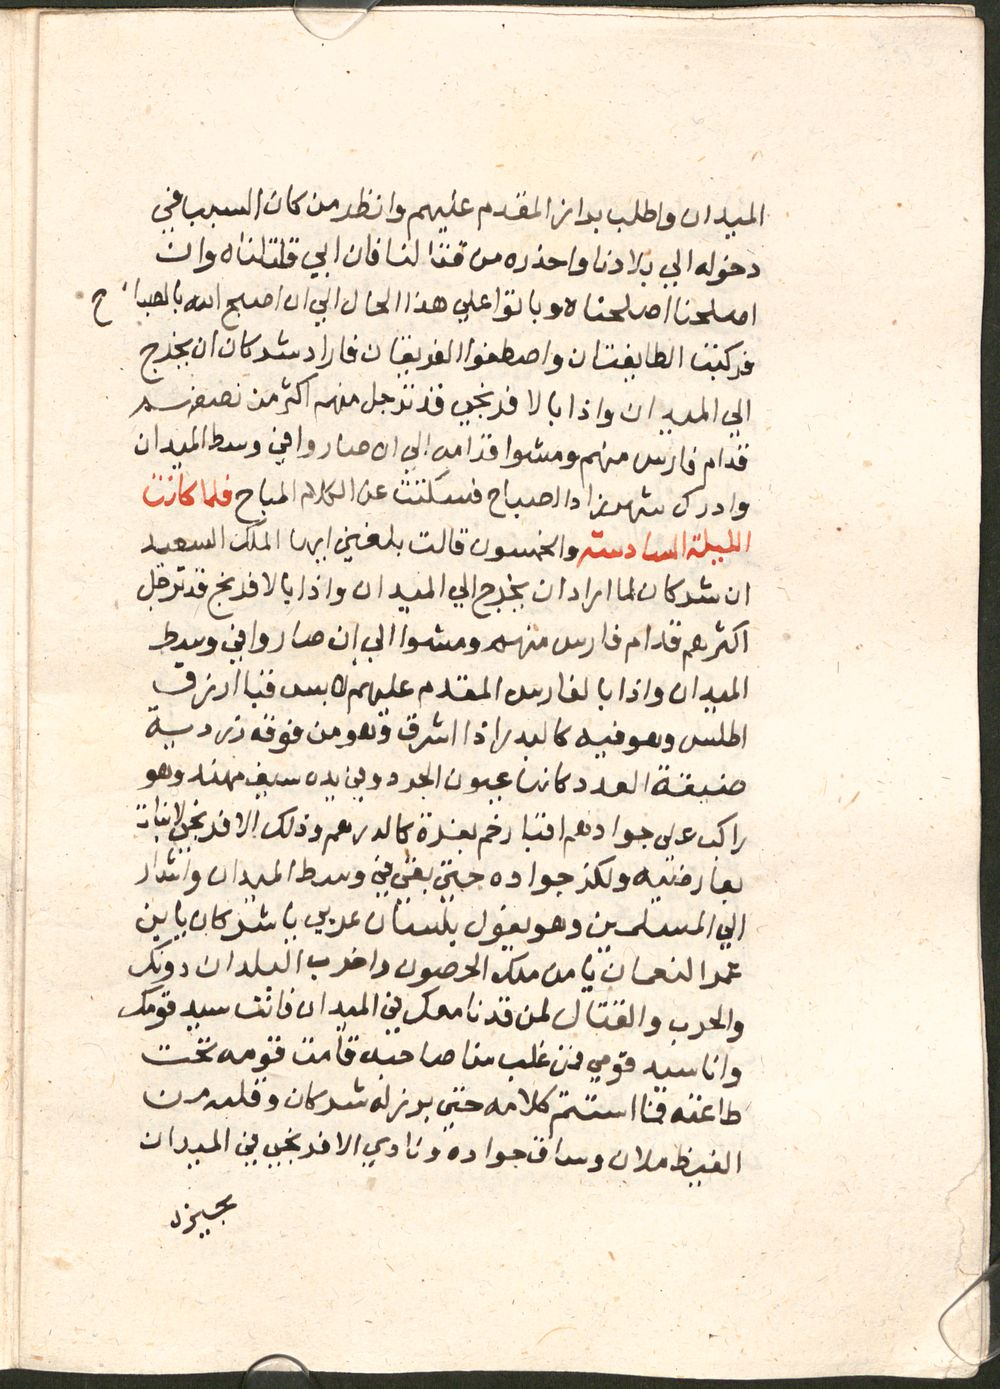 الميدان واطلب براز المقدم عليهم وانظر من كان السبب في
دخوله الي بلادنا واحذره من قتالنا فان ابي قاتلناه وان
اصلحنا اصلحناه وباتوا علي هذا الحال الي ان اصبح الله بالصباح
فركبت الطايفتان واصطفوا الفريقان فاراد شركان ان يخرج
الي الميدان واذا بالافرنجي قد ترجل منهم اكثر من نصفهم
قدام فارس منهم ومشوا قدامه الي ان صاروا في وسط الميدان
وادرك شهرزاد الصباح فسكتت عن الكلام المباح فلما كانت
الليلة السادسة والخمسون قالت بلغني ايها الملك السعيد
ان شركان لما اراد ان يخرج الي الميدان واذا بالافرنج قد ترجل
اكثرهم قدام فارس منهم ومشوا الي ان صاروا في وسط
الميدان واذا بالفارس المقدم عليهم لابس قبا ازرق
اطلس وهو فيه كالبدر اذا اشرق وهو من فوقه زردية
ضيقة العدد كانها عيون الجرد وفي يده سيف مهند وهو
راكب علي جواد ادهم رخم بغرة كالدرهم وذلك الافرنجي لانبات
بعارضيه ولكز جواده حتي بقي في وسط الميدان واشار
الي المسلمين وهو يقول بلسان عربي يا شركان يا ابن
عمر النعمان يا من ملك الحصون واخرب البلدان دونك
والحرب والقتال لمن قد نامعك في الميدان فانت سيد قومك
وانا سيد قومي فمن غلب منا صاحبه قامت قومه تحت
طاعته فما استتم كلامه حتي برز له شركان وقلبه من
الغيظ ملان وساق جواده ونادي الافرنجي في الميدان